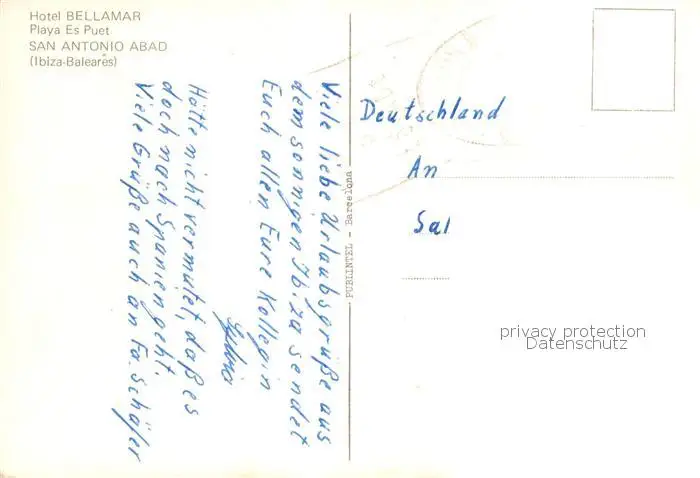 Hotel BELLAMAR
Playa Es Puet
SAN ANTONIO ABAD
(Ibiza-Baleares)
Viele liebe Urlaubsgrüße aus
dem sonnigen Ibiza sendet
Euch allen Eure Kollegin
Sylvia
Hätte nicht vermutet, daß es
doch nach Spanien geht.
Viele Grüße auch an Fa. Schäfer
PUBLINTEL - Barcelona
Deutschland
An
Sal
privacy protection
Datenschutz